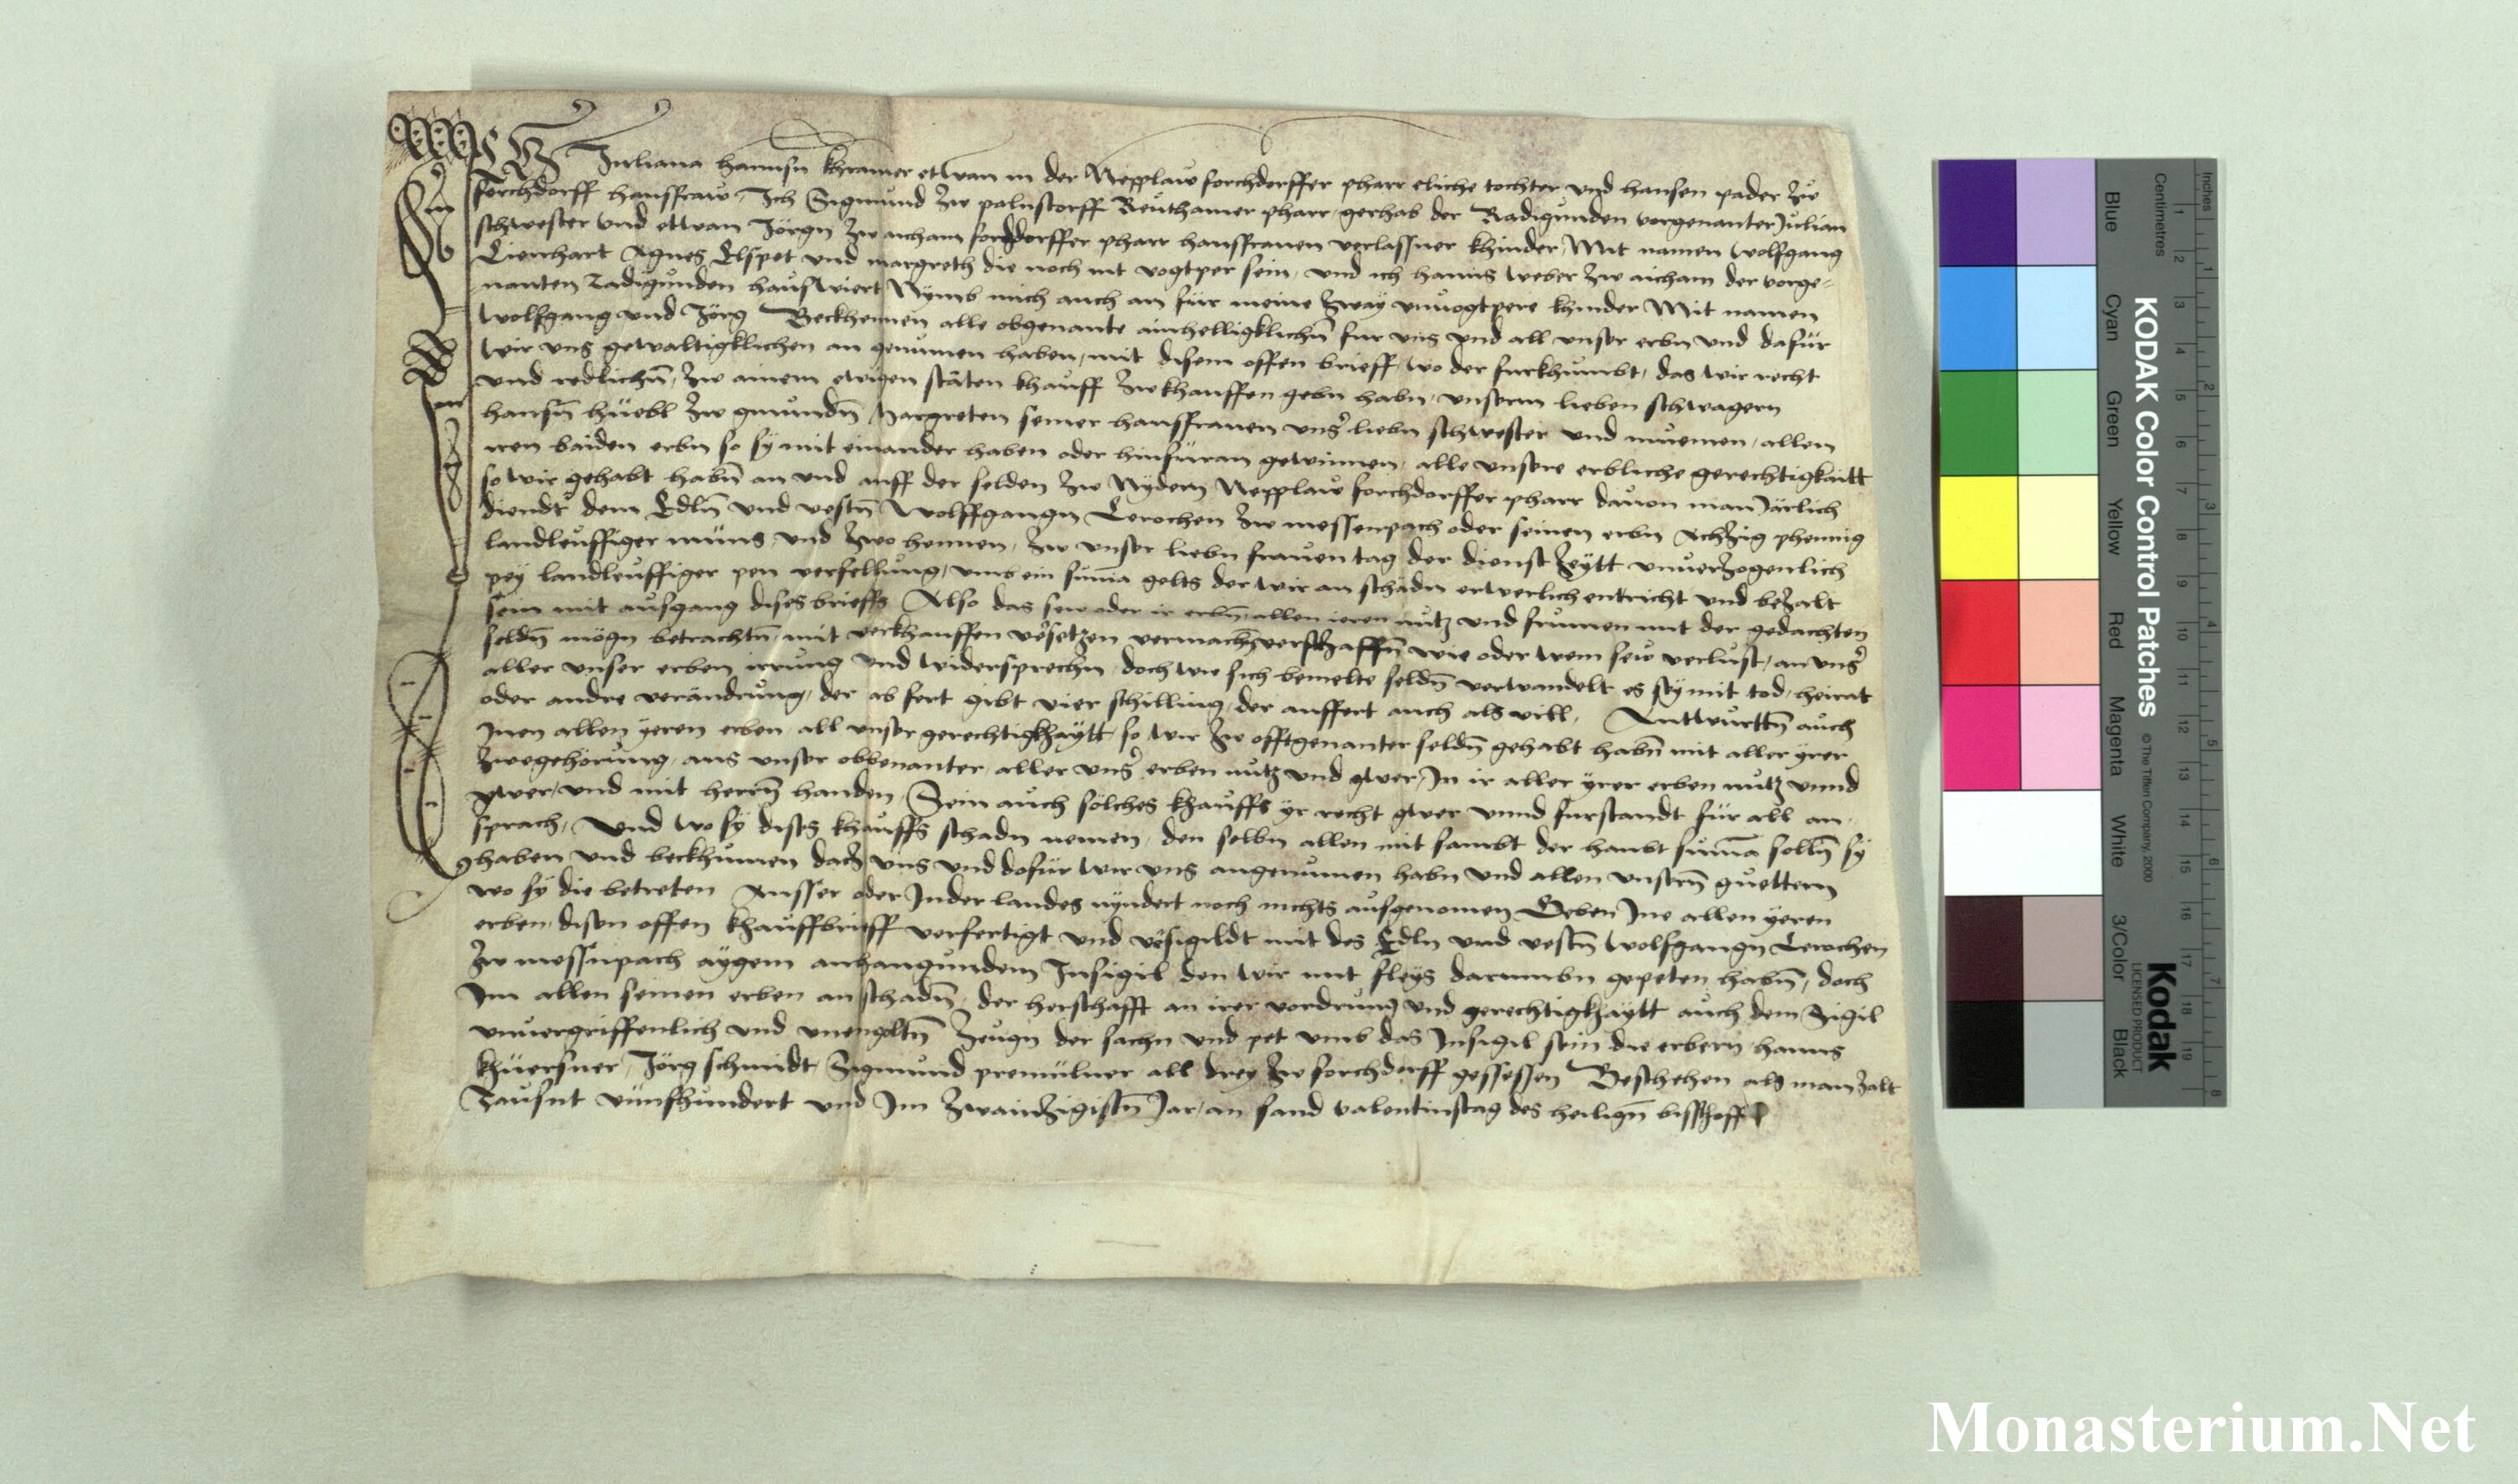 Ich Juliana Hannsn Khramer etwan in der Nepplaw forchdorffer pharr eliche tochter vnd hansen pader zw
forchdorff hausfraw, Ich Sigmund zw palnstorff Reuthamer pharr gerhab der Radigunden vorgenanter Julian
schwester vnd etwan Jörgn zw aicham forchdorffer pharr hausfrauen verlassner khinder, Mit namen Wolfgang
Lienhart Agnes Elspet vnd margreth die noch nit vogtper sein, vnd ich hanns weber zw aicham der vorge-
nanten Radigunden hauswiert Nymb mich auch an für meine zway vnuogtpere khinder Mit namen
Wolfgang vnd Jörg Beckhennen alle obgenante ainhelligklichn für vns vnd all vnser erbn vnd dafür
wir vns gewaltigklichen an genumen haben, mit disem offen brieff, wo der furkhumbt, das wir recht
vnd redlichn, zw ainem ewigen stäten khauff zw khauffen gebn habn, vnserm lieben schwagern
hansn hüebl zw gmundn Margreten seiner hausfrauen vnser liebn schwester vnd muemen, allen
iren baiden erbn so sy mit einander haben oder hinfüran gewinnen, alle vnsere erbliche gerechtigkaitt
so wir gehabt habn an vnd auff der selden zw Nydern Nepplaw forchdorffer pharr dauon man Järlich
diendt dem Edln vnd vestn Wolffgangn Lerochen zw messenpach oder seinen erbn Achzig phennig
landleuffiger müns vnd zwo hennen, zw vnser liebn frauen tag der dienst zeytt vnuerzogenlich
pey landleuffiger pen verfellung, vmb ein suma gelts der wir an schadn erwerlich entricht vnd bezalt
sein mit ausgang dises brieffs Also das sew oder ir erbn allen ieren nutz vnd frumen mit der gedachten
seldn mögn betrachtn mit verkhauffen versetzen vermachn verschaffn wie oder wem sew verlust, an vnser
aller vnser erben irrung vnd widersprechn, doch wie sich bemelte seldn verwandelt es sey mit tod, heirat
oder andre verändrung, der ab fert gibt vier schilling, der auffert auch als vill. Antwurttn auch
Inen allen yeren erben all vnser gerechtigkhaytt so wir zw offtgenanter seldn gehabt habn mit aller yrer
zwegehörung, aus vnser obbenanter, aller vnser erben nutz vnd gwer, In ir aller yrer erben nutz vnnd
gwer, vnd mit herrn handen, Sein auch sölches khauffs yr recht gwer vnnd furstandt für all an-
sprach, Vnd wo sy dises khauffs schadn nemen, den selbn allen mit sambt der haubt suma solln sy
haben vnd beckhumen dacz vns vnd dofür wir vns angenumen habn vnd allen vnsern guettern
wo sy die betreten Ausser oder Inder landes nyndert noch nichts ausgenomen Geben Ine allen yeren
erben disen offen khauffbrieff verfertigt vnd vesigildt mit des Edln vnd vestn Wolfgangn Lerochen
zw messnpach aygem anhangundem Insigil den wir mit fleys darumbn gepeten habn, doch
Im allen seinen erben an schadn, der herschafft an irer vordrung vnd gerechtigkhaytt auch dem Sigil
vnuergriffenlich vnd vnengoltn Zeugn der sachn vnd pet vmb das Insigil sein die erbern hanns
khüersner, Jörg schmidt Sigmund premülner all drey zw forchdorff gesessen Beschehen als man zalt
Tausnt vünfhundert vnd Im zwainzigistn Jar, an sand valentinstag des heilign bisschoff
KODAK Color Control Patches
© The Tiffen Company, 2000
Kodak
LICENSED PRODUCT
Inches
Centimetres
Blue
Cyan
Green
Yellow
Red
Magenta
White
3/Color
Black
Monasterium.Net